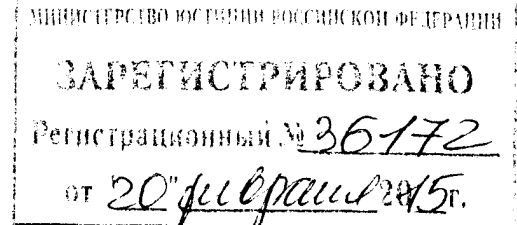 МИНИСТЕРСТВО ЮСТИЦИИ РОССИЙСКОЙ ФЕДЕРАЦИИ
ЗАРЕГИСТРИРОВАНО
Регистрационный № 36172
от "20" февраля 2015г.